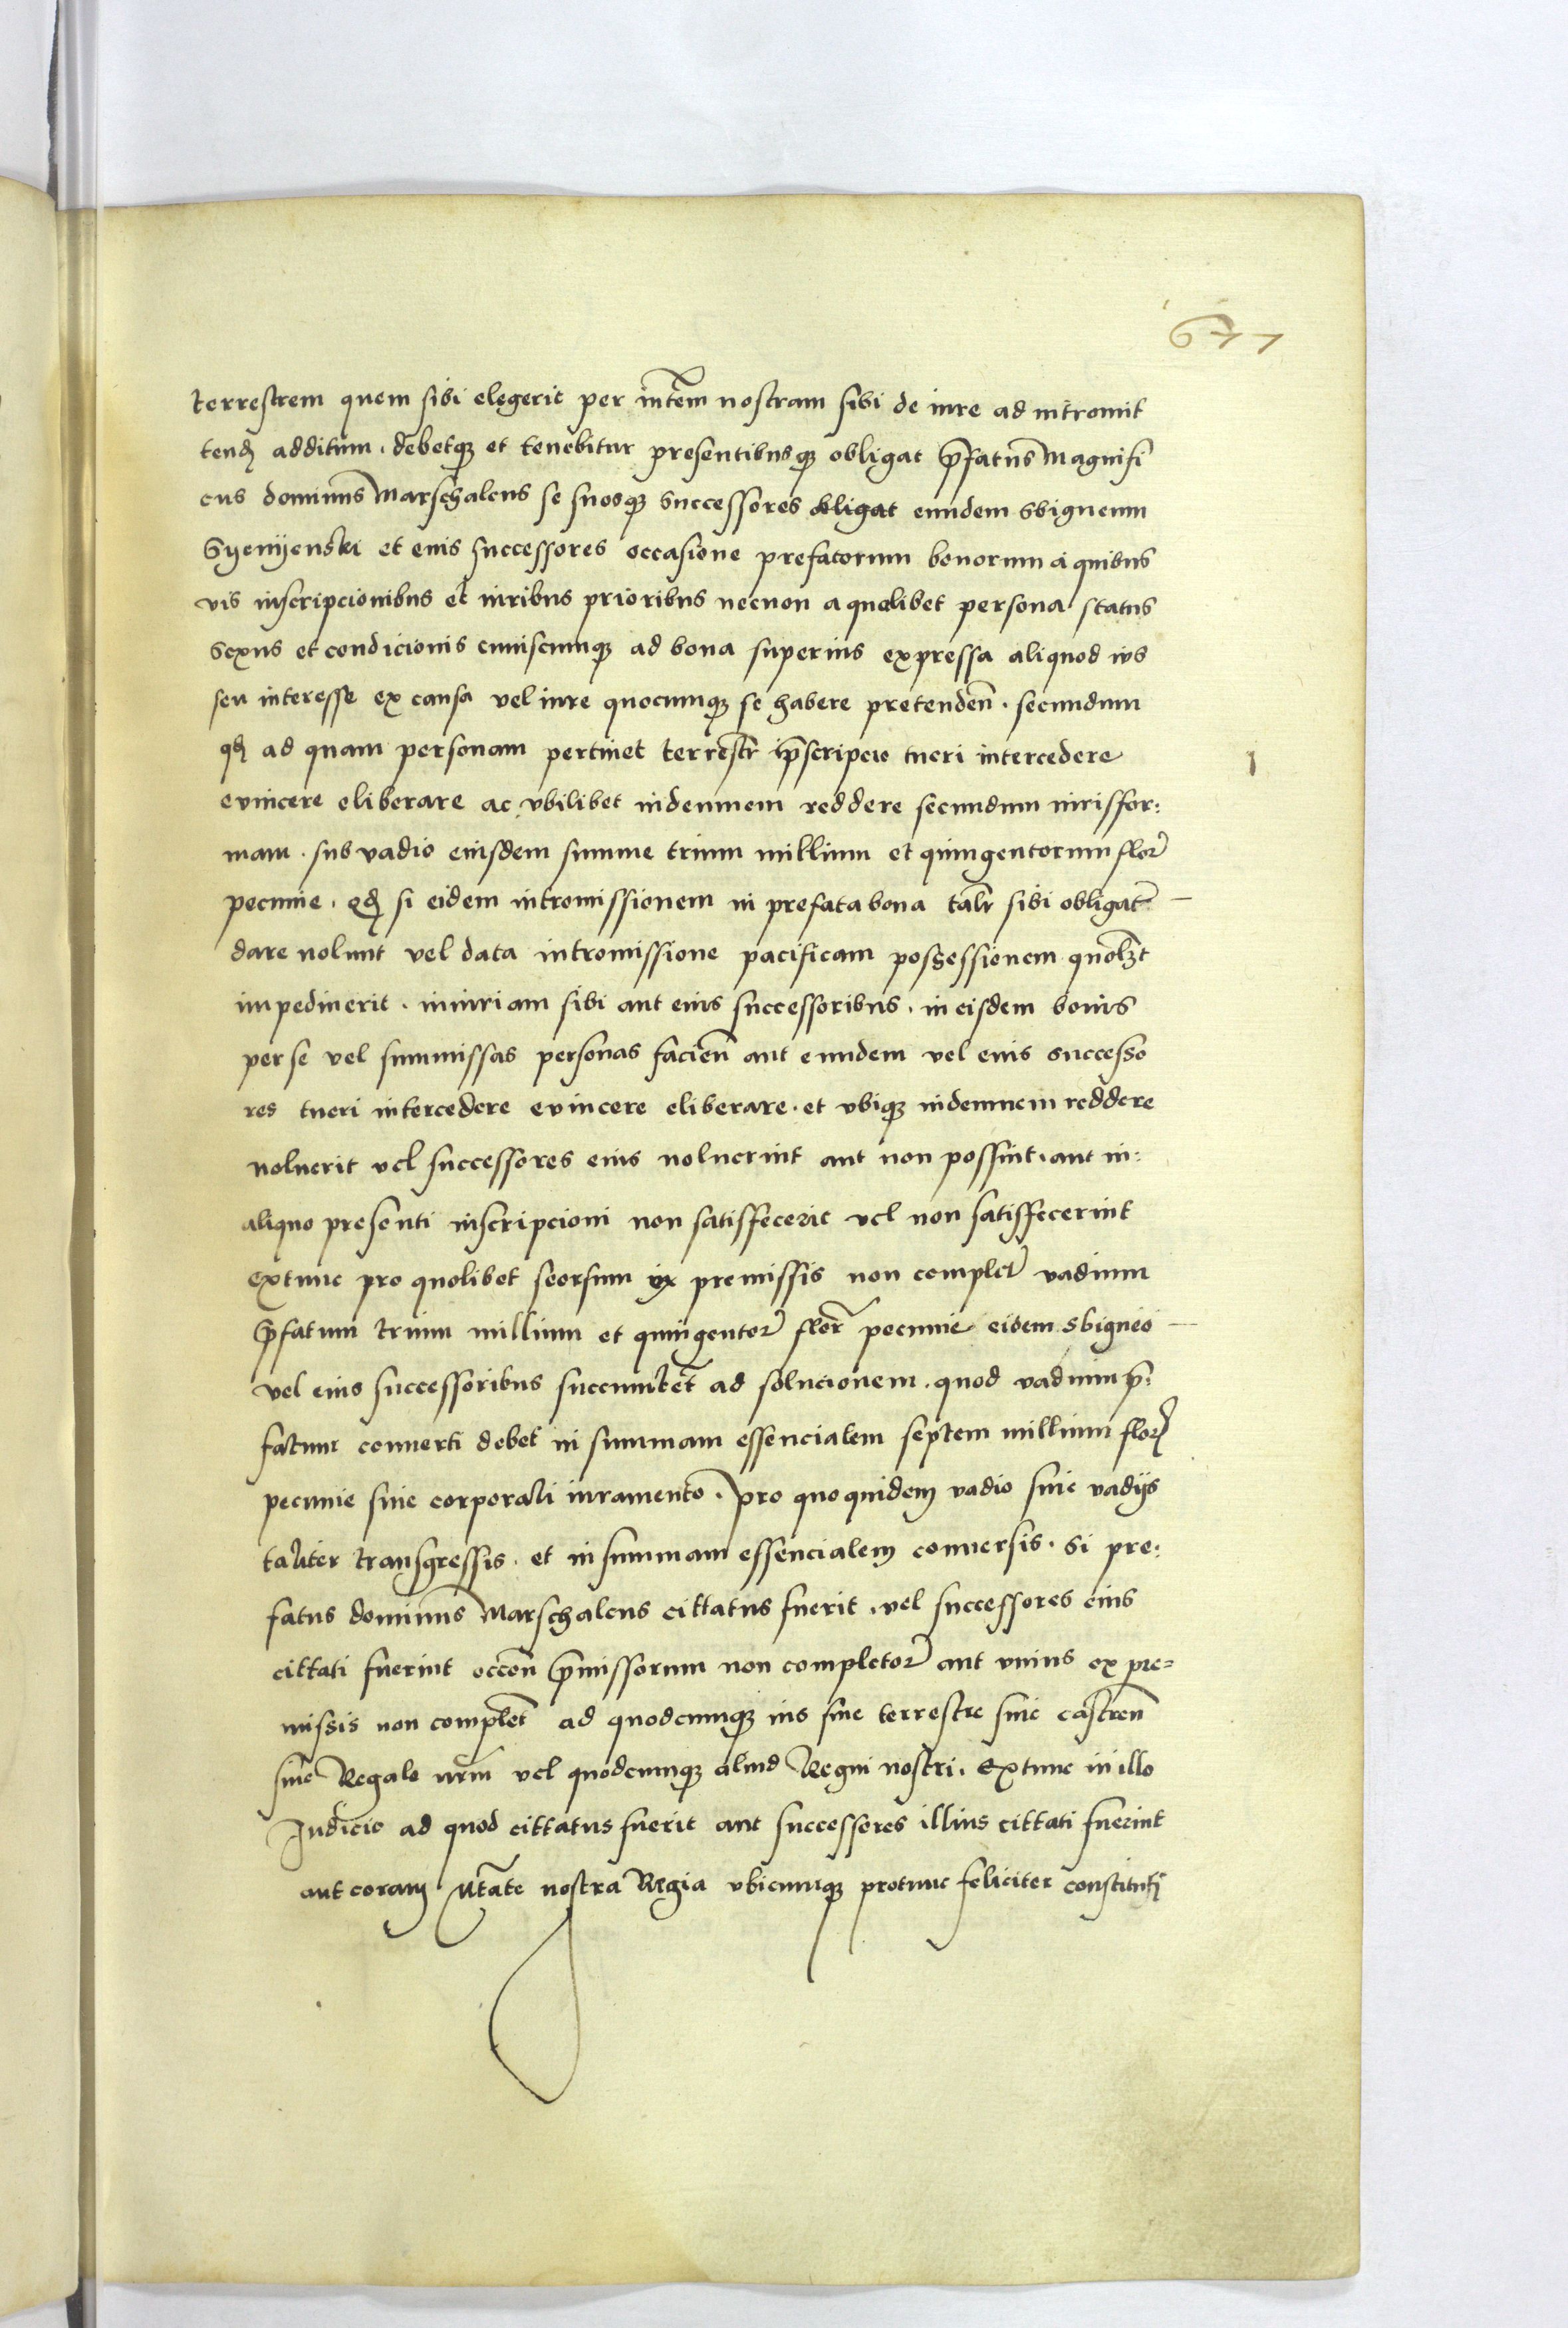 671
terrestrem quem sibi elegerit per mtem nostram sibi de iure ad intromit
tend additum . debetq et tenebitur presentibusq obligat pfatus Magnifi
cus dominus Marschalcus se suosq successores obligat eundem Sbigneum
Syenyenski et eius successores occasione prefatorum bonorum a quibus
vis inscripcionibus et iuribus prioribus necnon a qualibet persona status
sexus et condicionis cuiuscumq ad bona superius expressa aliquod ius
seu interesse ex causa vel iure quocumq se habere pretenden . secundum
qd ad quam personam pertinet terrestr pscripcio tueri intercedere
evincere eliberare ac ubilibet indemnem reddere secundum iuris for:
mam . sub vadio eiusdem summe trium millium et quingentorum flor
pecunie . Qd si eidem intromissionem in prefata bona talr sibi obligat
dare nolunt vel data intromissione pacificam possessionem quolzt
impediverit . iniuriam sibi aut eius successoribus . in eisdem bonis
per se vel summissas personas facien aut eundem vel eius successo
res tueri intercedere evincere eliberare . et ubiq indemnem reddere
noluerit vel successores eius noluerint aut non possint . aut in:
aliquo presenti inscripcioni non satisfecerit vel non satisfecerint
extunc pro quolibet seorsum ex premissis non complet vadium
pfatum trium millium et quingentor flor pecunie eidem Sbigneo
vel eius successoribus succumbet ad solucionem . quod vadium p:
fatum converti debet in summam essencialem septem millium flor
pecunie sine corporali iuramento . Pro quo quidem vadio sive vadys
taliter transgressis . et in summam essencialem conversis . Si pre:
fatus dominus Marschalcus cittatus fuerit . vel successores eius
cittati fuerint occon pmissorum non completor aut unius ex pre=
missis non complet ad quodcumq ius sive terrestre sive castren
sive Regale nrm vel quodcumq aliud Regni nostri . Extunc in illo
Judicio ad quod cittatus fuerit aut successores illius cittati fuerint
aut coram Mtate nostra Regia ubicumq protunc feliciter constitut